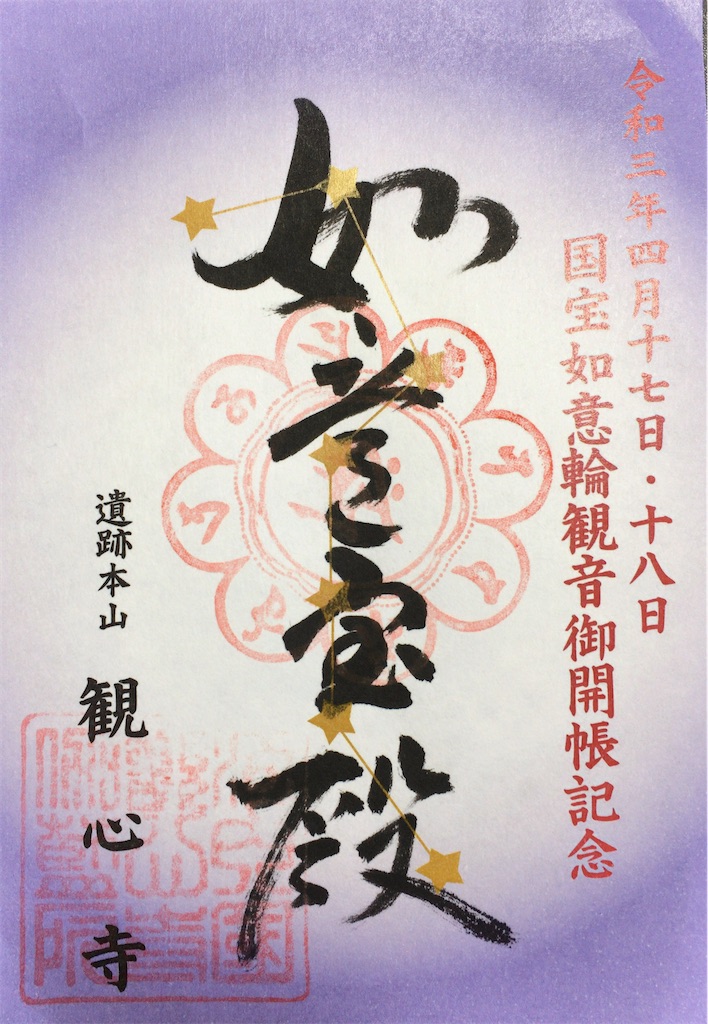 令和三年四月十七日・十八日
国宝如意輪観音御開帳記念
如意宝殿
遺跡本山 観心寺